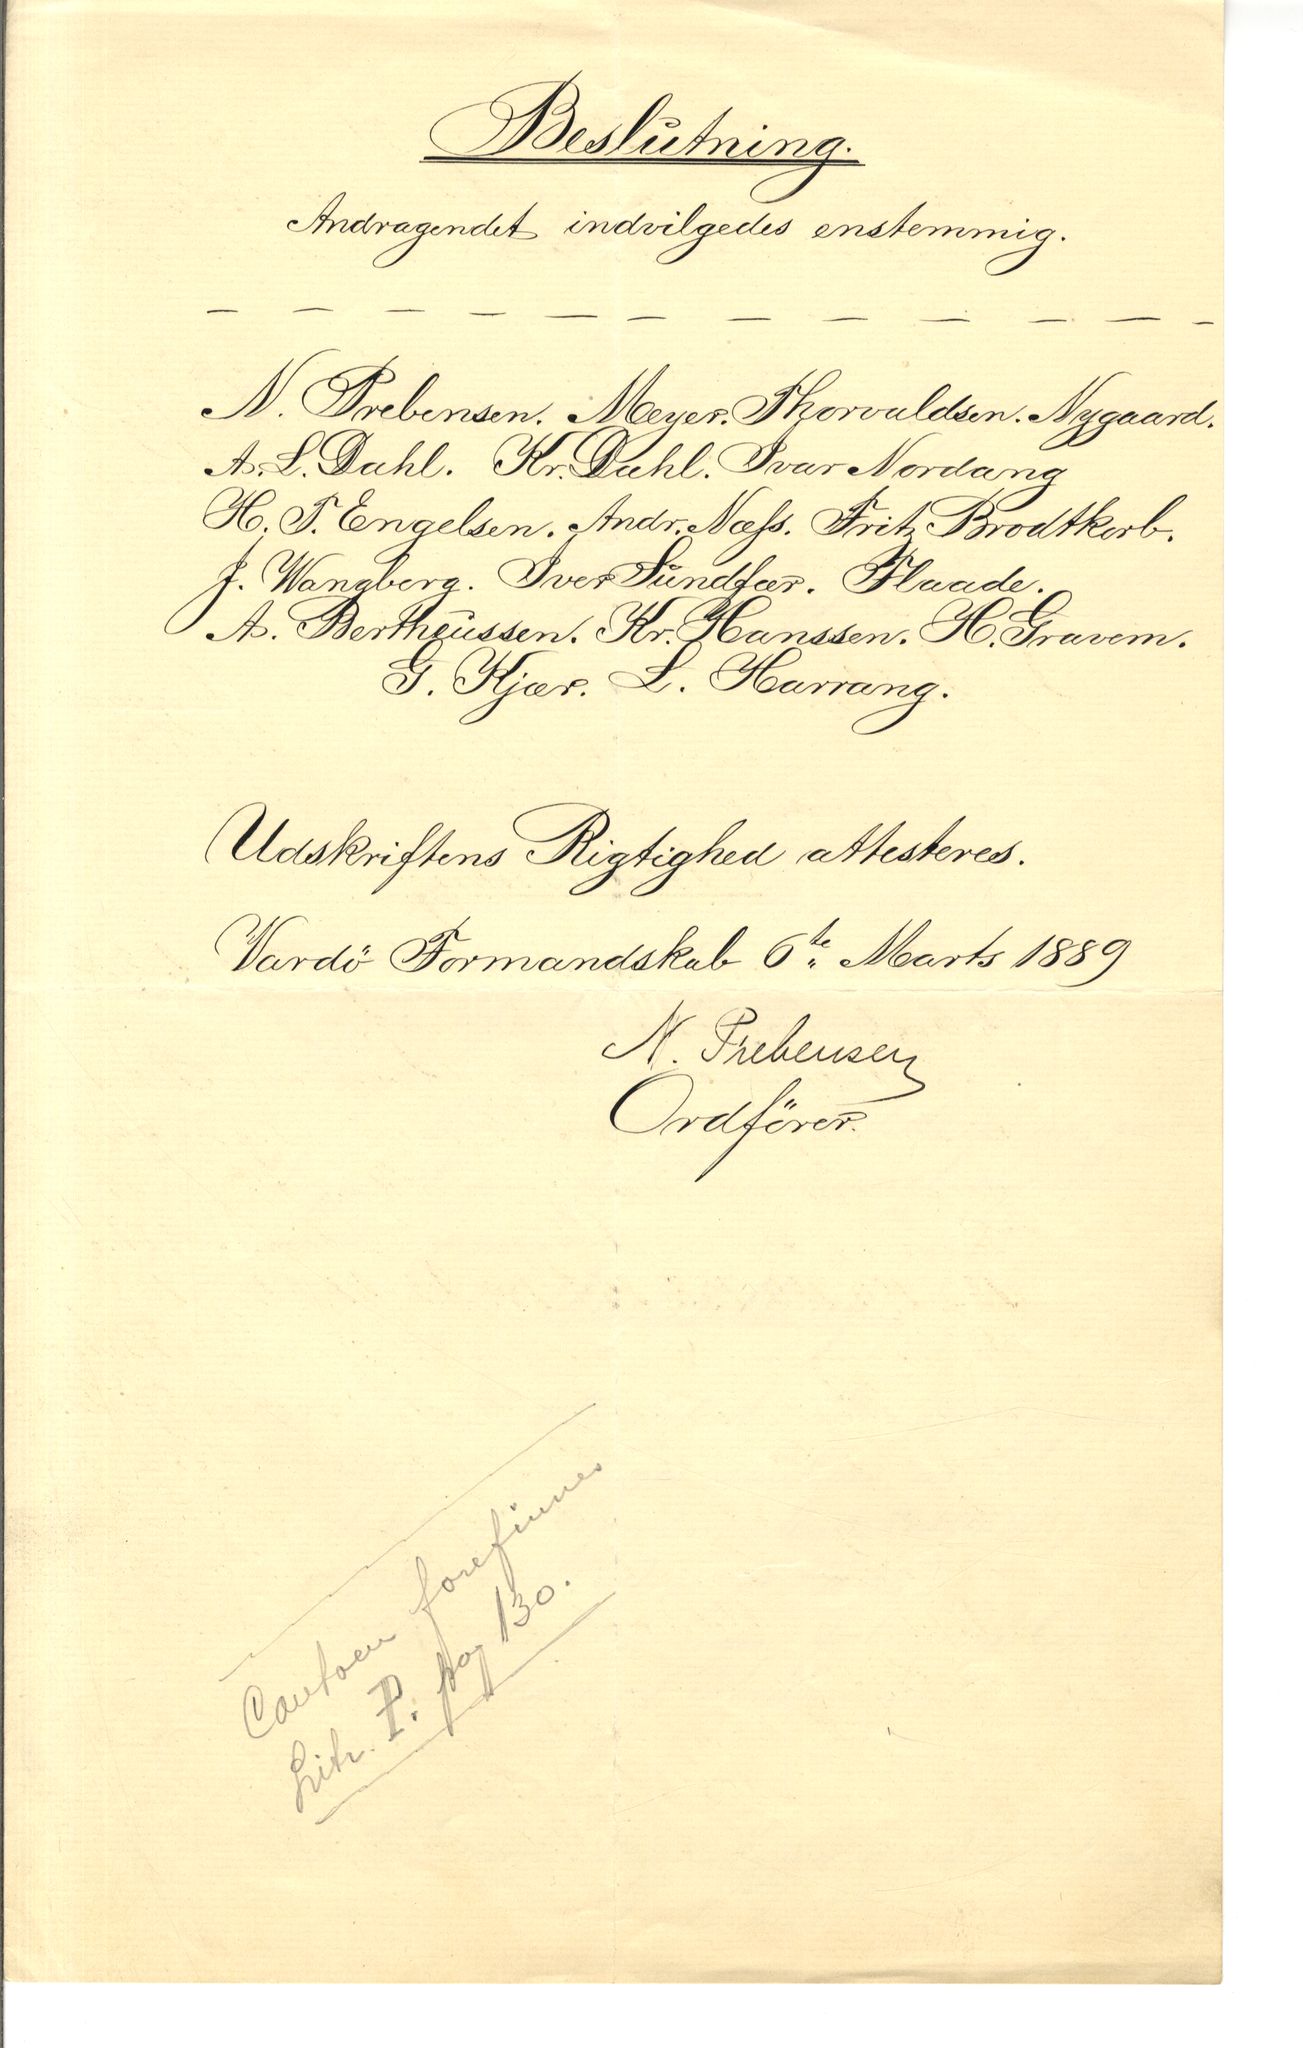 Beslutning.
Andragendet indvilgedes enstemmig.
— — — — — — — — — — — -
N. Prebensen. Meyer. Thorvaldsen. Nygaard.
A. L. Dahl. Kr. Dahl. Ivar Nordang
H. T. Engelsen. Andr. Næss. Fritz Brodtkorb.
J. Wangberg. Iver Sundfær. Flaade.
A. Bertheussen. Kr. Hanssen. H. Gravem.
G. Kjær. L. Harrang.
Udskriftens Rigtighed attesteres.
Vardö Formandskab 6te Marts 1889
N. Prebensen
Ordförer.
forefinnes
Litr. pag 130.